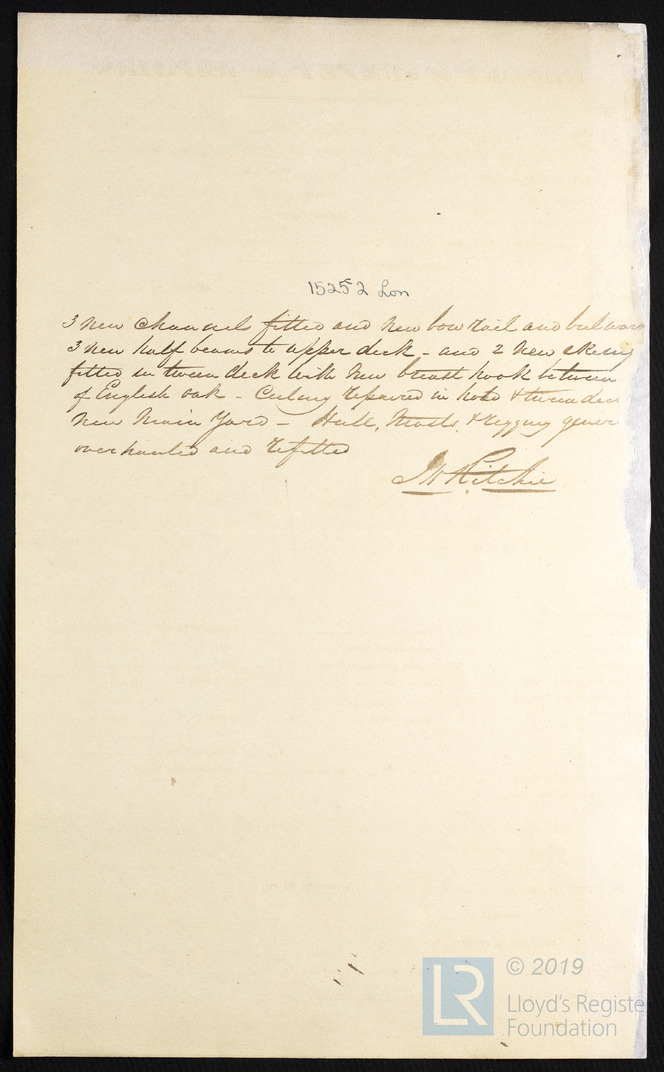 15252 Lon
3 new channels fitted and new bow rail and bulwark
3 new half beams to upper deck - and 2 new
fitted in tween deck with new breast hook between
of English oak - Ceiling repaired in hold & tween dec
New Main Yard - Hull, Masts & rigging gener
overhauled and refitted
J W Ritchie
© 2019
LR
Lloyd's Registe
Foundation